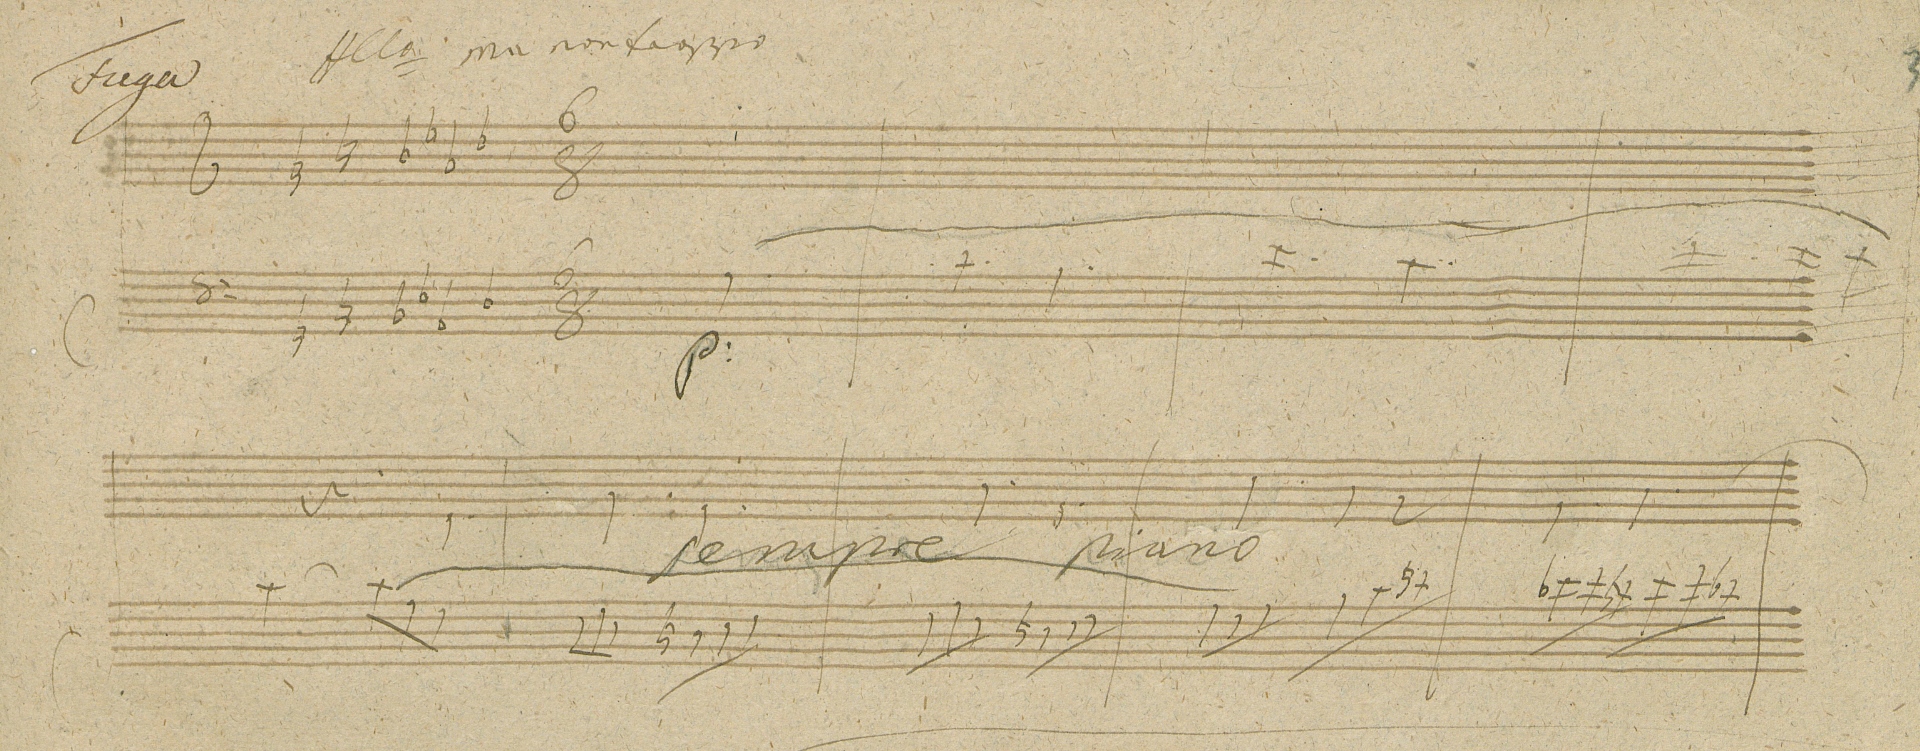 Fuga Allo ma non troppo
6
8
6
8
p:
sempre piano